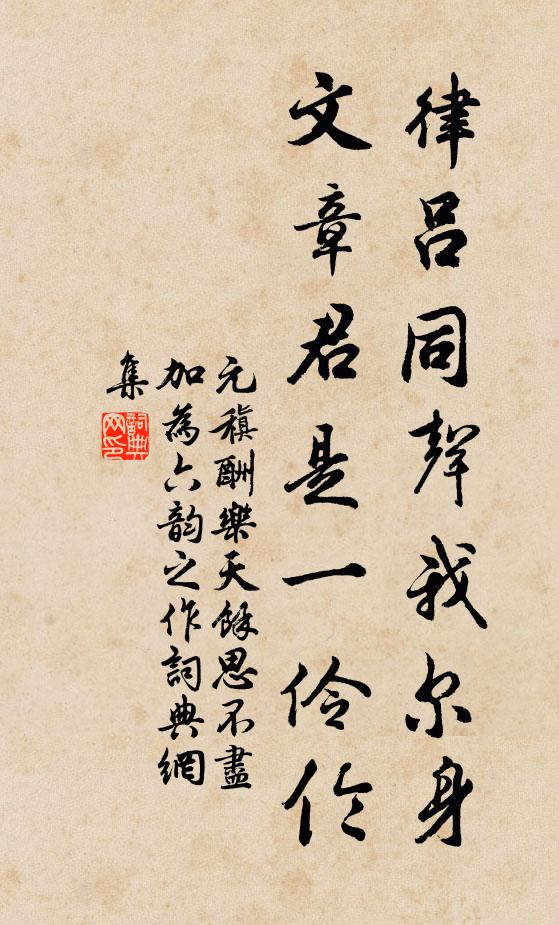 律呂同聲我尔身
文章君是一伶伦
元稹酬樂天餘思不盡
加為六韵之作詞典網
集
詞典网印